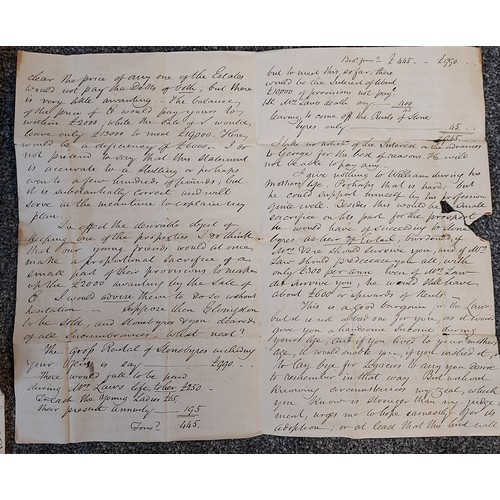 clear the price of any one of the Estates
would not pay the Debts of both; but there
is very little awanting – The balance
of the price of E would pay yours to
within £2000, while the sale of would
leave only £13000 to meet £19000. Here
would be a deficiency of £6000. I do
not pretend to say that this statement
is accurate to a shilling or perhaps
even to a few hundreds of pounds; but
it is substantially correct and will
serve in the meantime to explain my
plan.
To effect the desirable object of
keeping one of the properties I do think
that your friends would at once
make a proportional sacrifice of a
small part of their provisions to make
up the £2000 awanting by the Sale of
E. I would advise them to do so without
hesitation – Suppose then Elvingston
to be Sold, and Stonebyres & you cleared
of all Incumbrances, what next?
The Gross Rental of Stonebyres including
your is say £990.
There would fall to be paid
during Mrs Law's life, to her £250.
To each the young Ladies £65,
their present annuity 195
Forwd 445.
Brot forwd £445 £990.
but to meet this, so far, there
would be the Interest of about
£10000 of provisions not payl
till Mrs Laws death, say 400
leaving to come off the Rents of Stone
byres only 45.
I take no notice of the Interest
to George for the best of reasons. He will
not be able to pay any.
I give nothing to William during his
mothers life. Perhaps that is hard, but
he could support himself by his profession
quite well. Besides this would be a small
sacrifice on his part for the prospect
he would have of succeeding to Stone
byres as heir of Entail. Burdened if
Mrs Dove should survive you, and if Mrs
Law should predecease you all, with
only £300 per ann. Even if Mrs Law
did survive you, he would still have
about £600 or upwards of Rental.
This is a good bargain in the Law
but is not a bad one for you, as it would
give you a handsome Income during
your life, and if you lived to your mothers
age, it would enable you, if you wished it,
to lay bye for Legacies to any you desire
to remember in that way. But without
knowing circumstances my Zeal, which
you know is stronger than my judge
ment, urges me to hope earnestly for its
adoption; or at least that this kind will